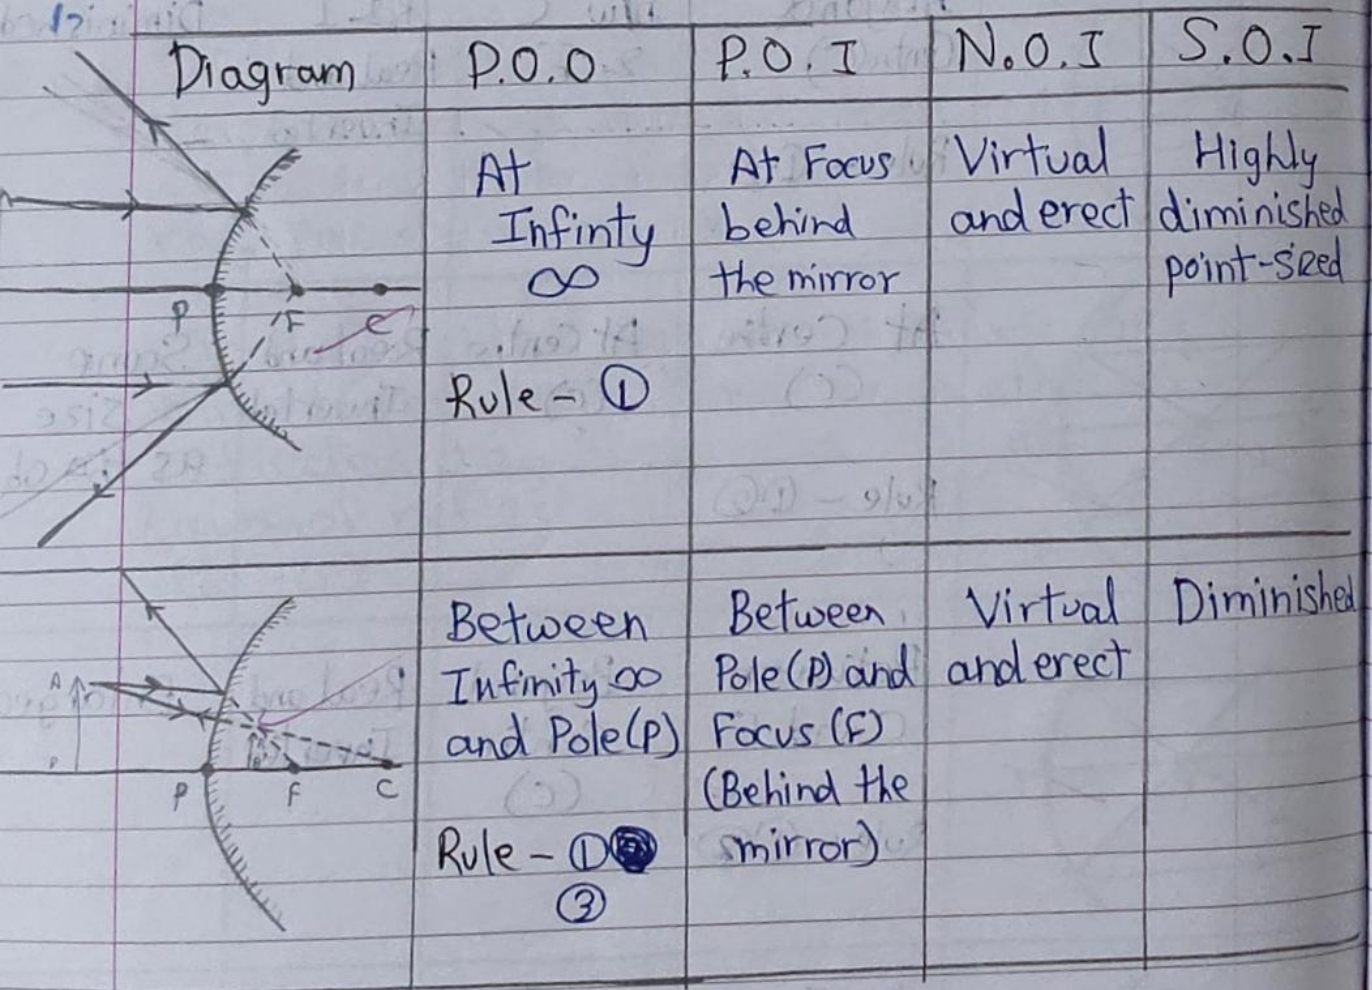 Diagram P.O.O P.O.I N.O.I S.O.I
At
Infinty
∞
Rule - ①
At Focus
behind
the mirror
Virtual
and erect
Highly
diminished
point-sized
P F C
Between
Infinity ∞
and Pole(P)
Rule - ①
③
Between
Pole(P) and
Focus (F)
(Behind the
mirror)
Virtual
and erect
Diminished
A
P F C